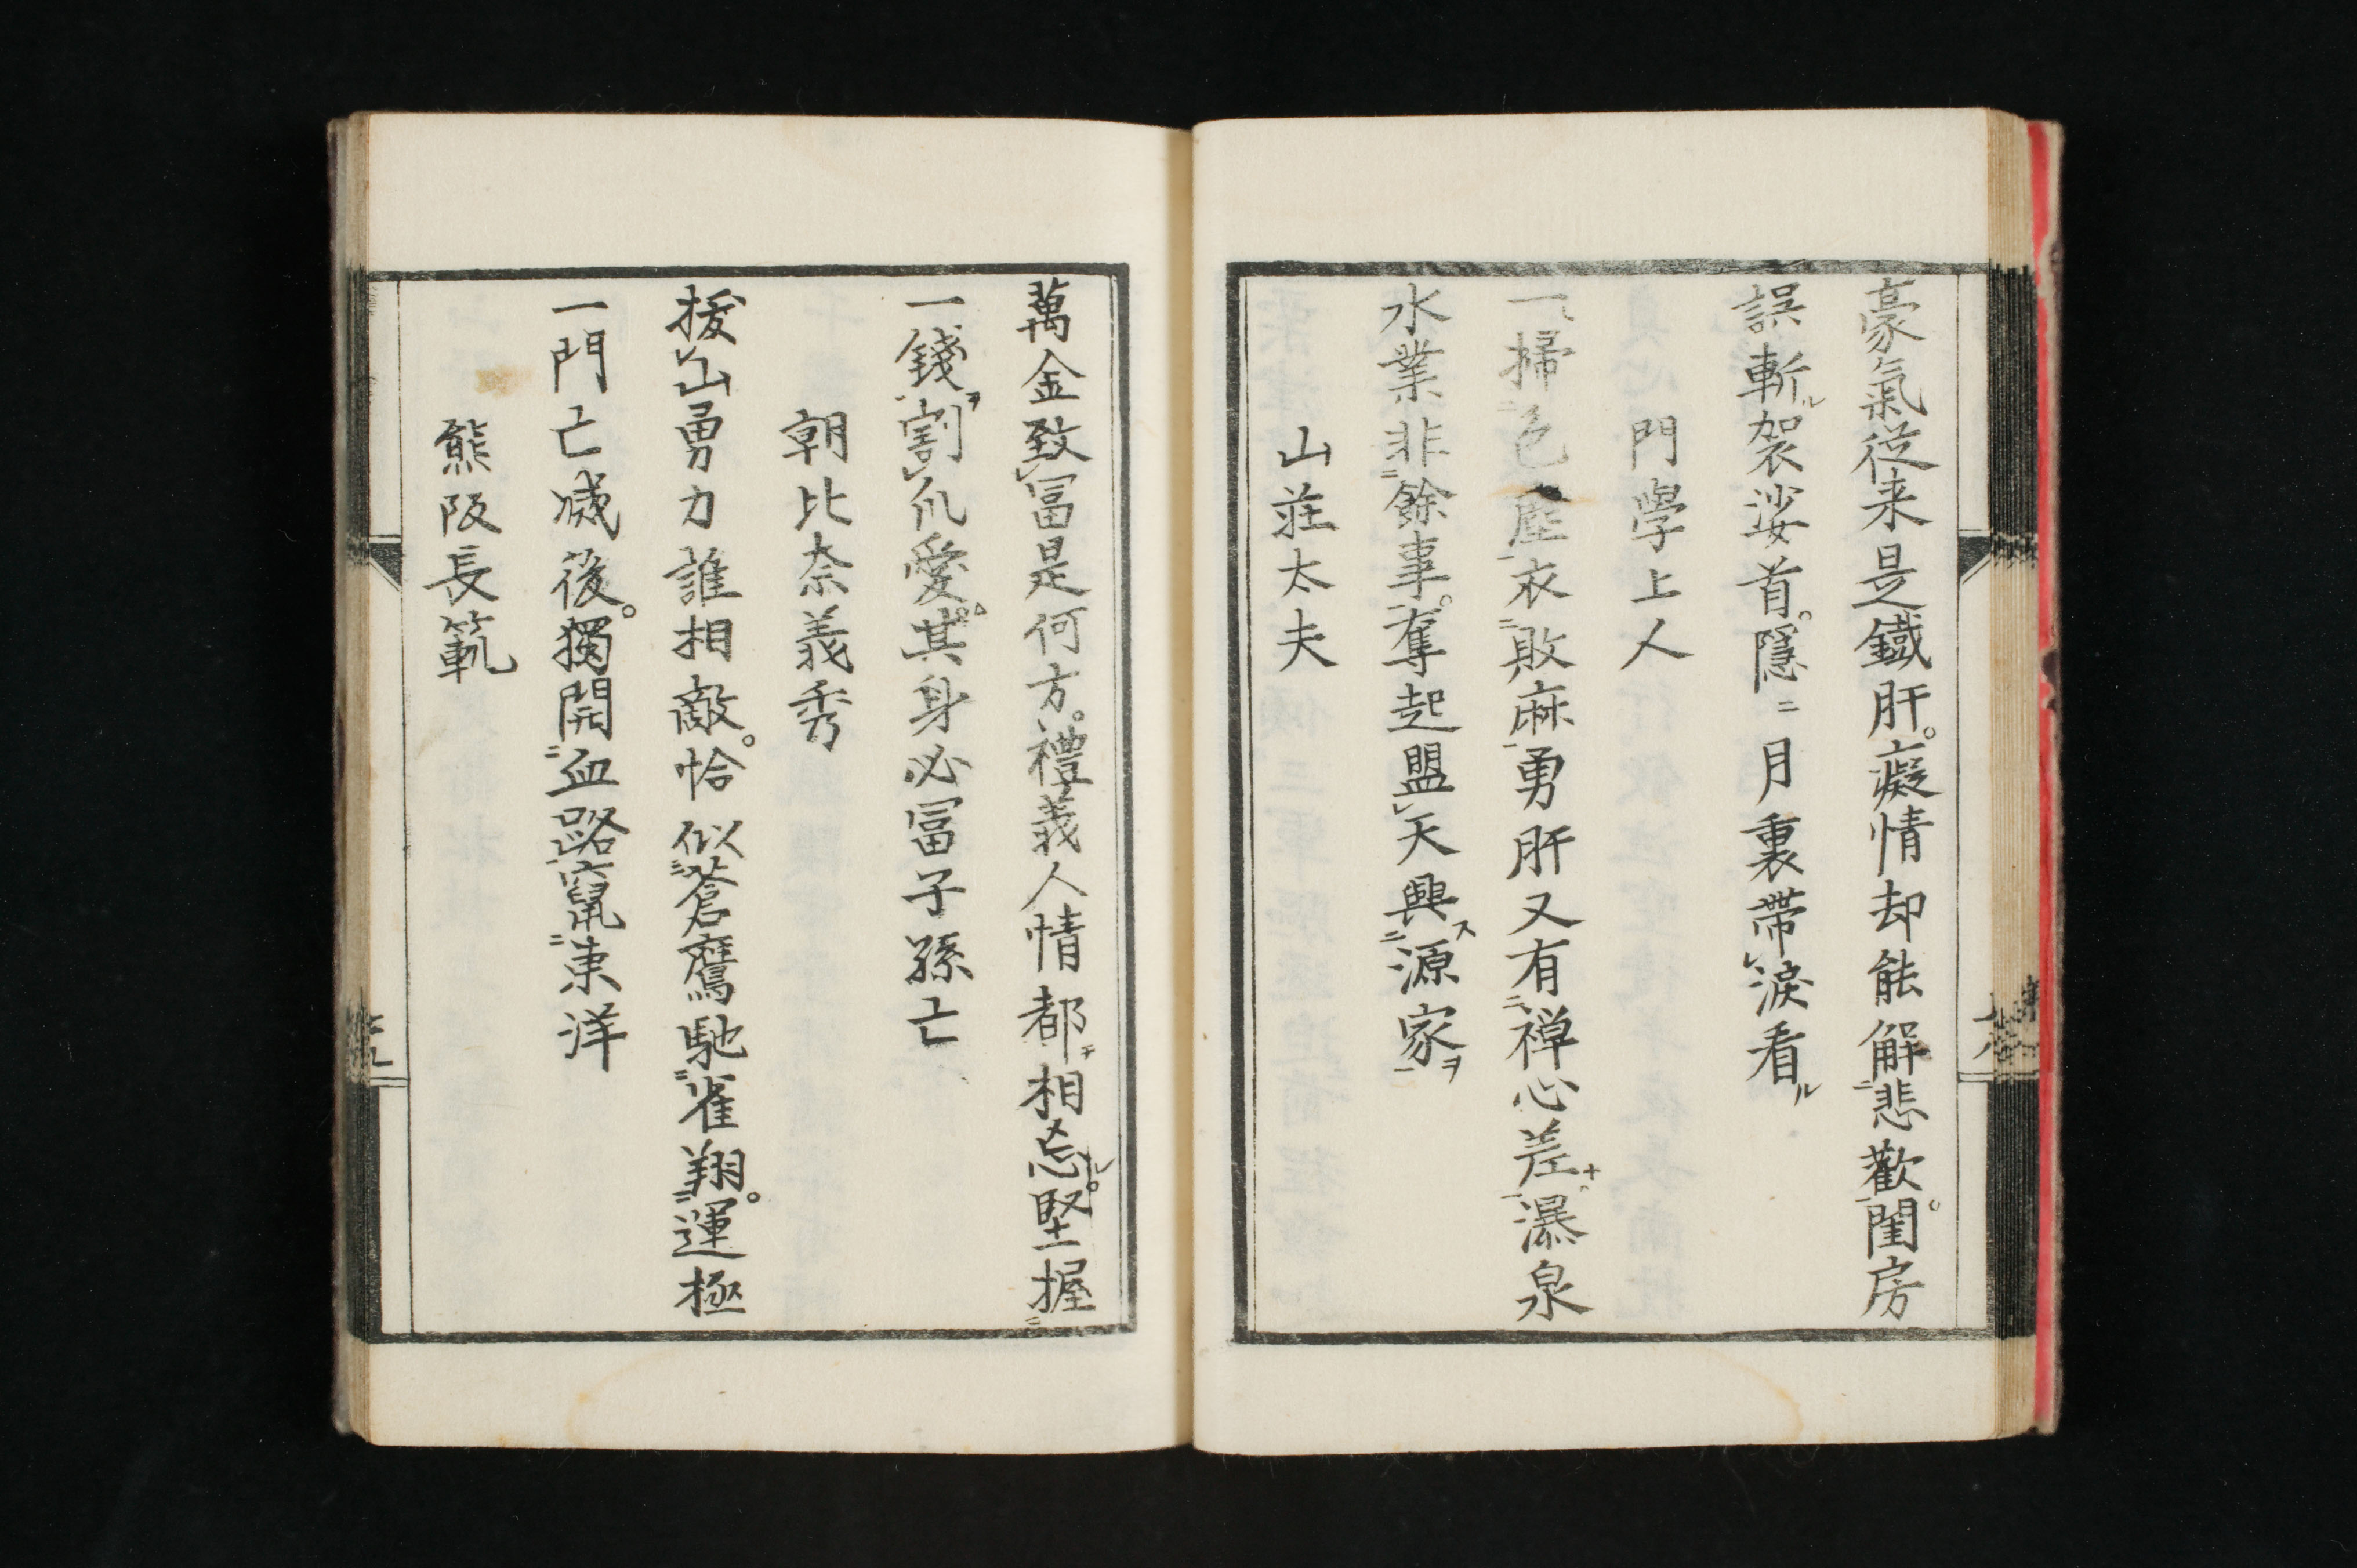 豪氣從来是鐵肝。癡情却能解悲歡。閨房
誤斬袈娑首。隱二月裏帶淚看
門學上人
一掃色塵衣敗麻勇肝又有禅心差瀑泉
水業非餘事。奪起盟天興源家
山莊太夫
萬金致冨是何方。禮義人情都相忘。堅握
一錢割爪愛。其身必冨子孫亡
朝比奈義秀
拔山勇力誰相敵。恰似蒼鷹馳雀翔。運極
一門亡滅後。獨開血路竄東洋
熊阪長範